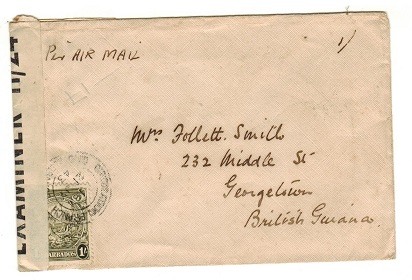 EXAMINER H/24
Per AIR MAIL
1/
Mrs Follett. Smith
232 Middle St
Georgetown
British Guiana
BARBADOS
1/-